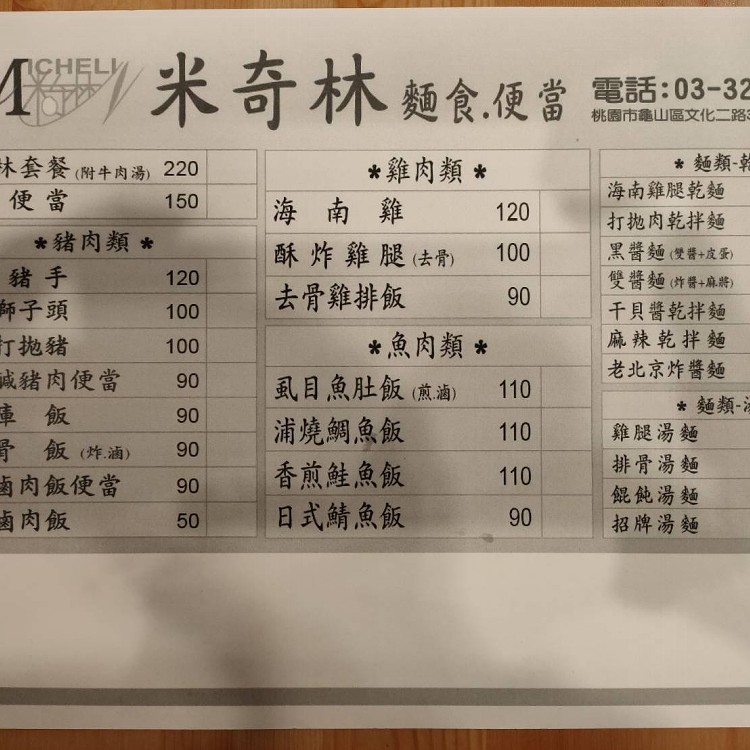 MICHELI
米奇林 麵食.便當
電話:03-32
桃園市龜山區文化二路3
林套餐(附牛肉湯) 220
便當 150
*豬肉類*
豬手 120
獅子頭 100
打拋豬 100
鹹豬肉便當 90
庫飯 90
骨飯(炸.滷) 90
滷肉飯便當 90
滷肉飯 50
*雞肉類*
海南雞 120
酥炸雞腿(去骨) 100
去骨雞排飯 90
*魚肉類*
虱目魚肚飯(煎.滷) 110
浦燒鯛魚飯 110
香煎鮭魚飯 110
日式鯖魚飯 90
* 麵類-乾
海南雞腿乾麵
打拋肉乾拌麵
黑醬麵(雙醬+皮蛋)
雙醬麵(炸醬+麻將)
干貝醬乾拌麵
麻辣乾拌麵
老北京炸醬麵
* 麵類-湯
雞腿湯麵
排骨湯麵
餛飩湯麵
招牌湯麵